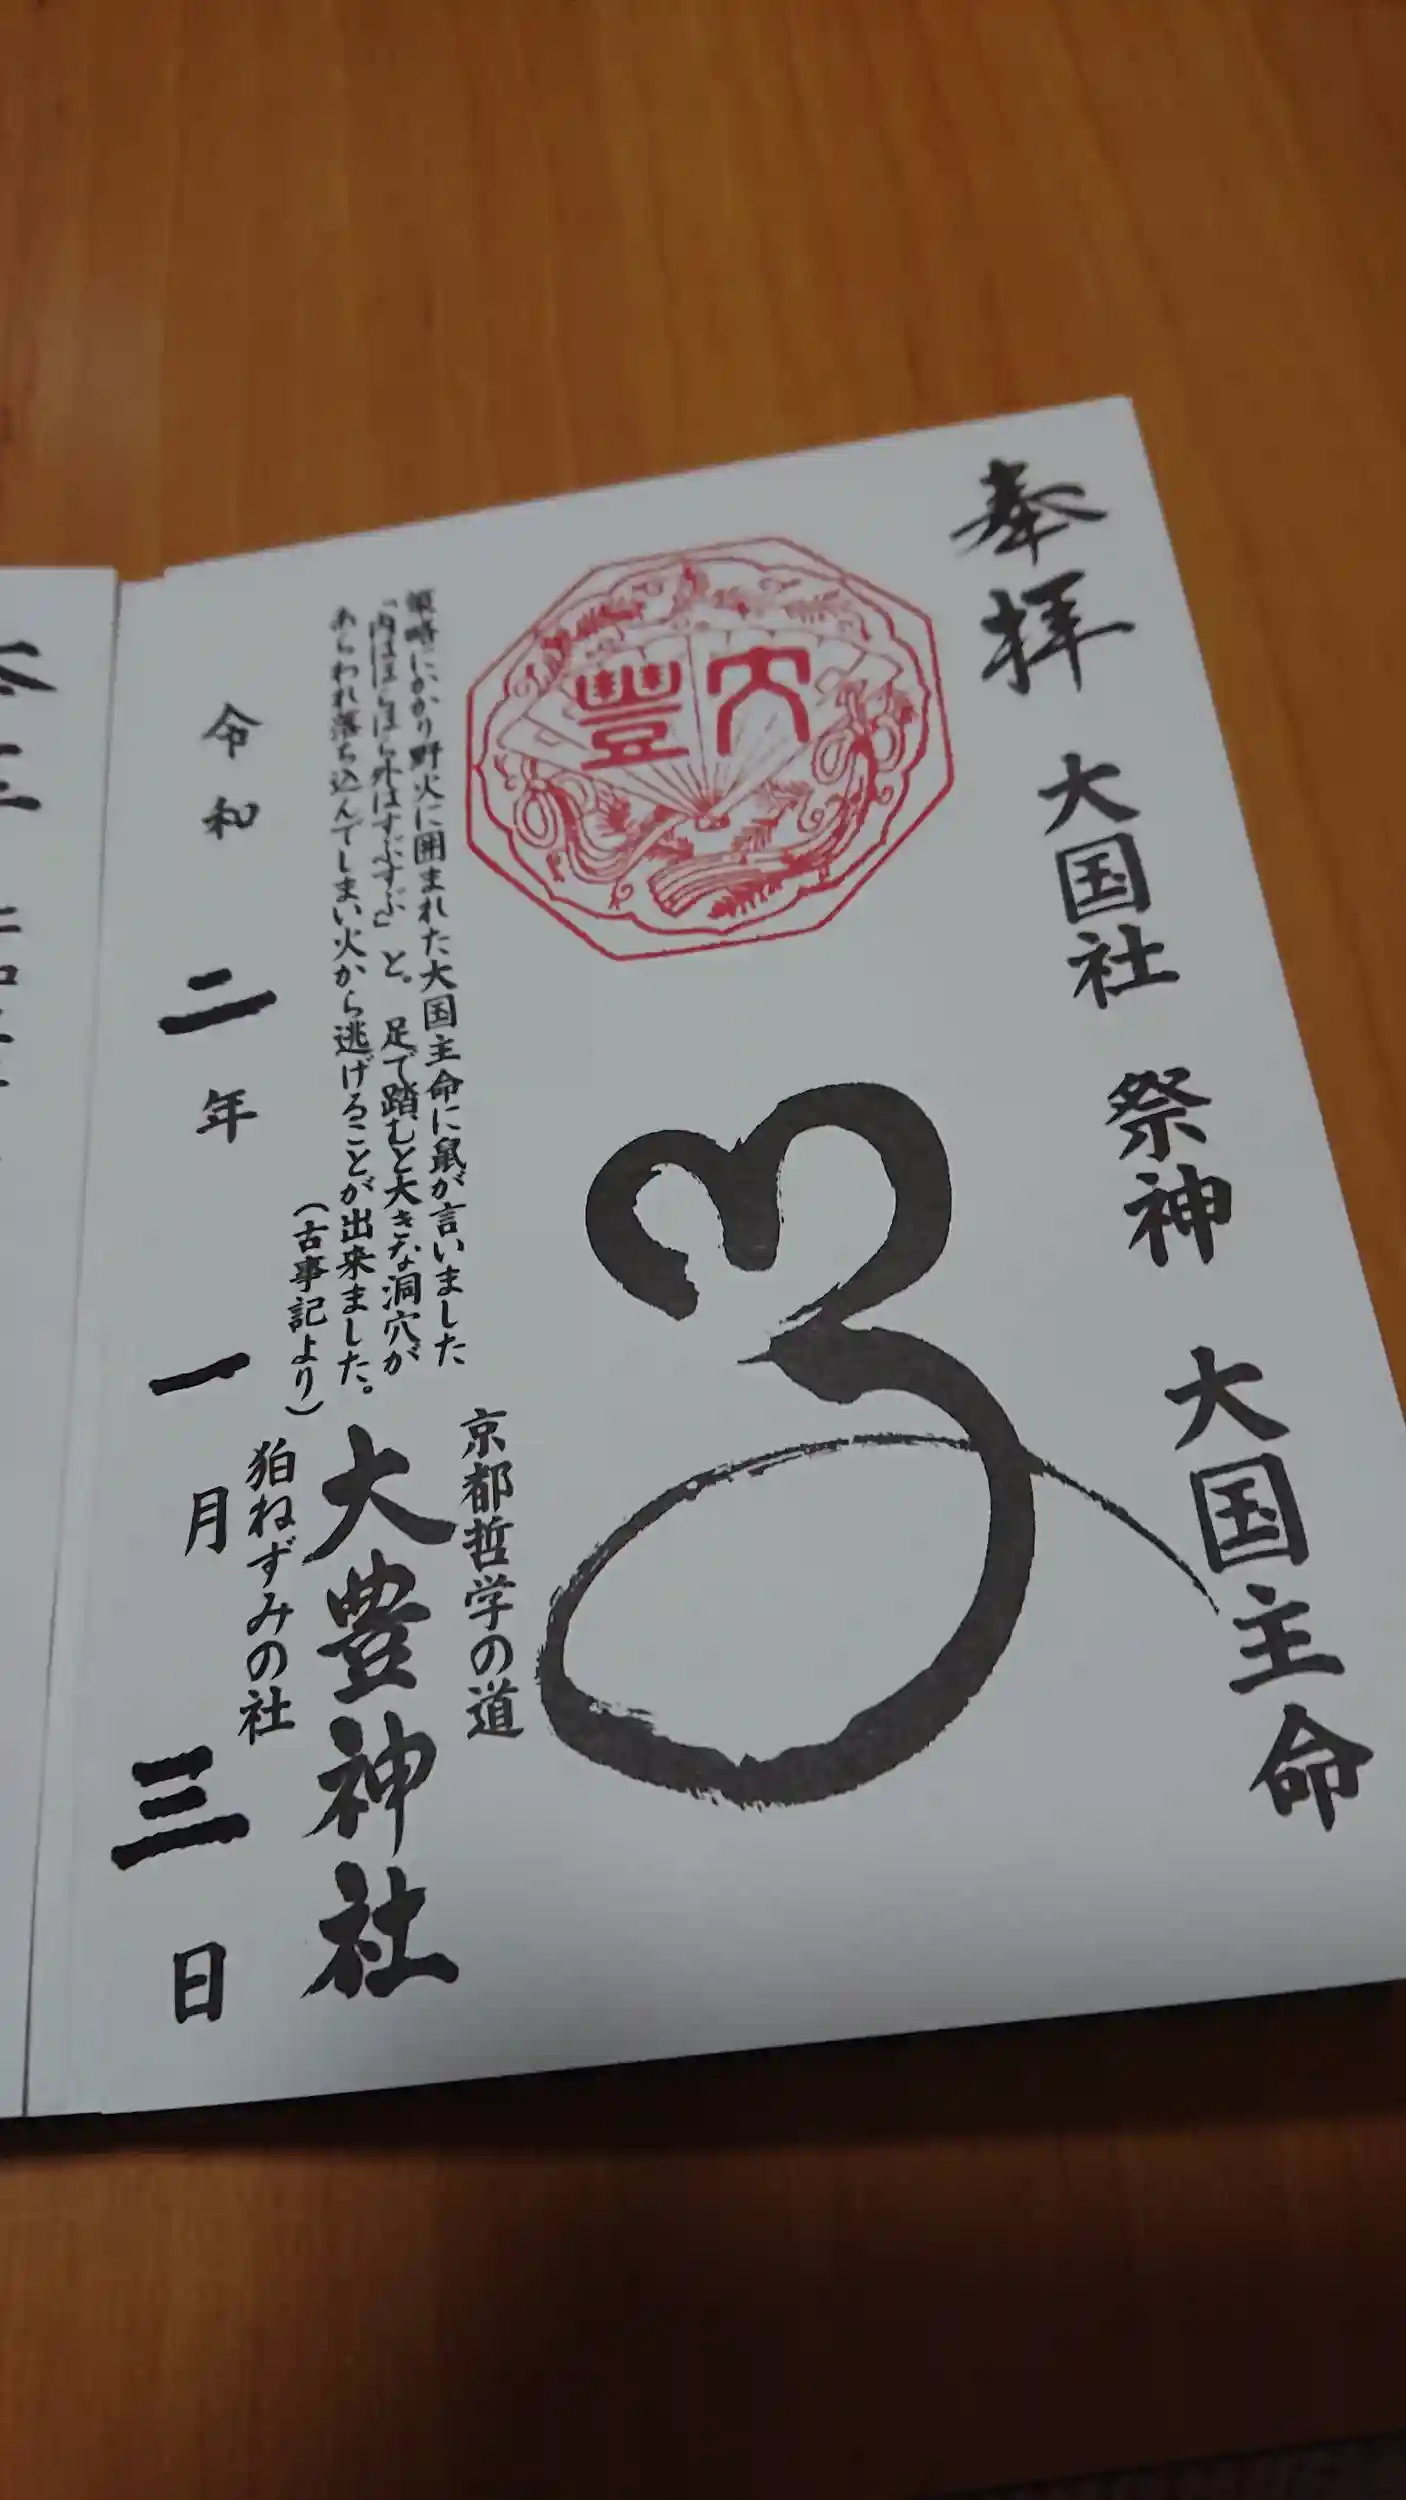 奉拝 大国社 祭神 大国主命
大豐
策略にかかり野火に囲まれた大国主命に鼠が言いました
「内はほらほら外はすぶすぶ」と。足で踏むと大きな洞穴が
あらわれ落ち込んでしまい火から逃げることが出来ました。
(古事記より)
京都哲学の道
大豊神社
狛ねずみの社
令和二年一月三日